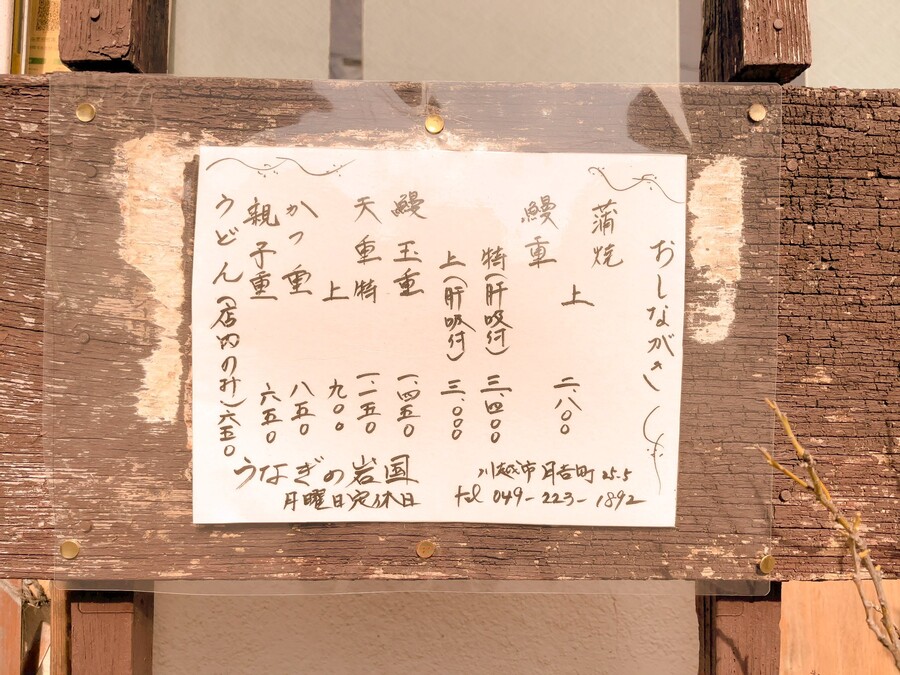 おしながき
蒲焼 上 二、八〇〇
鰻重 特(肝吸付) 三、四〇〇
上(肝吸付) 三、〇〇〇
鰻玉重 一、四五〇
天重 特 一、一五〇
上 九〇〇
かつ重 八五〇
親子重 六五〇
うどん(店内のみ)六五〇
うなぎの岩国
月曜日定休日
川越市月吉町25.5
tel 049-223-1892